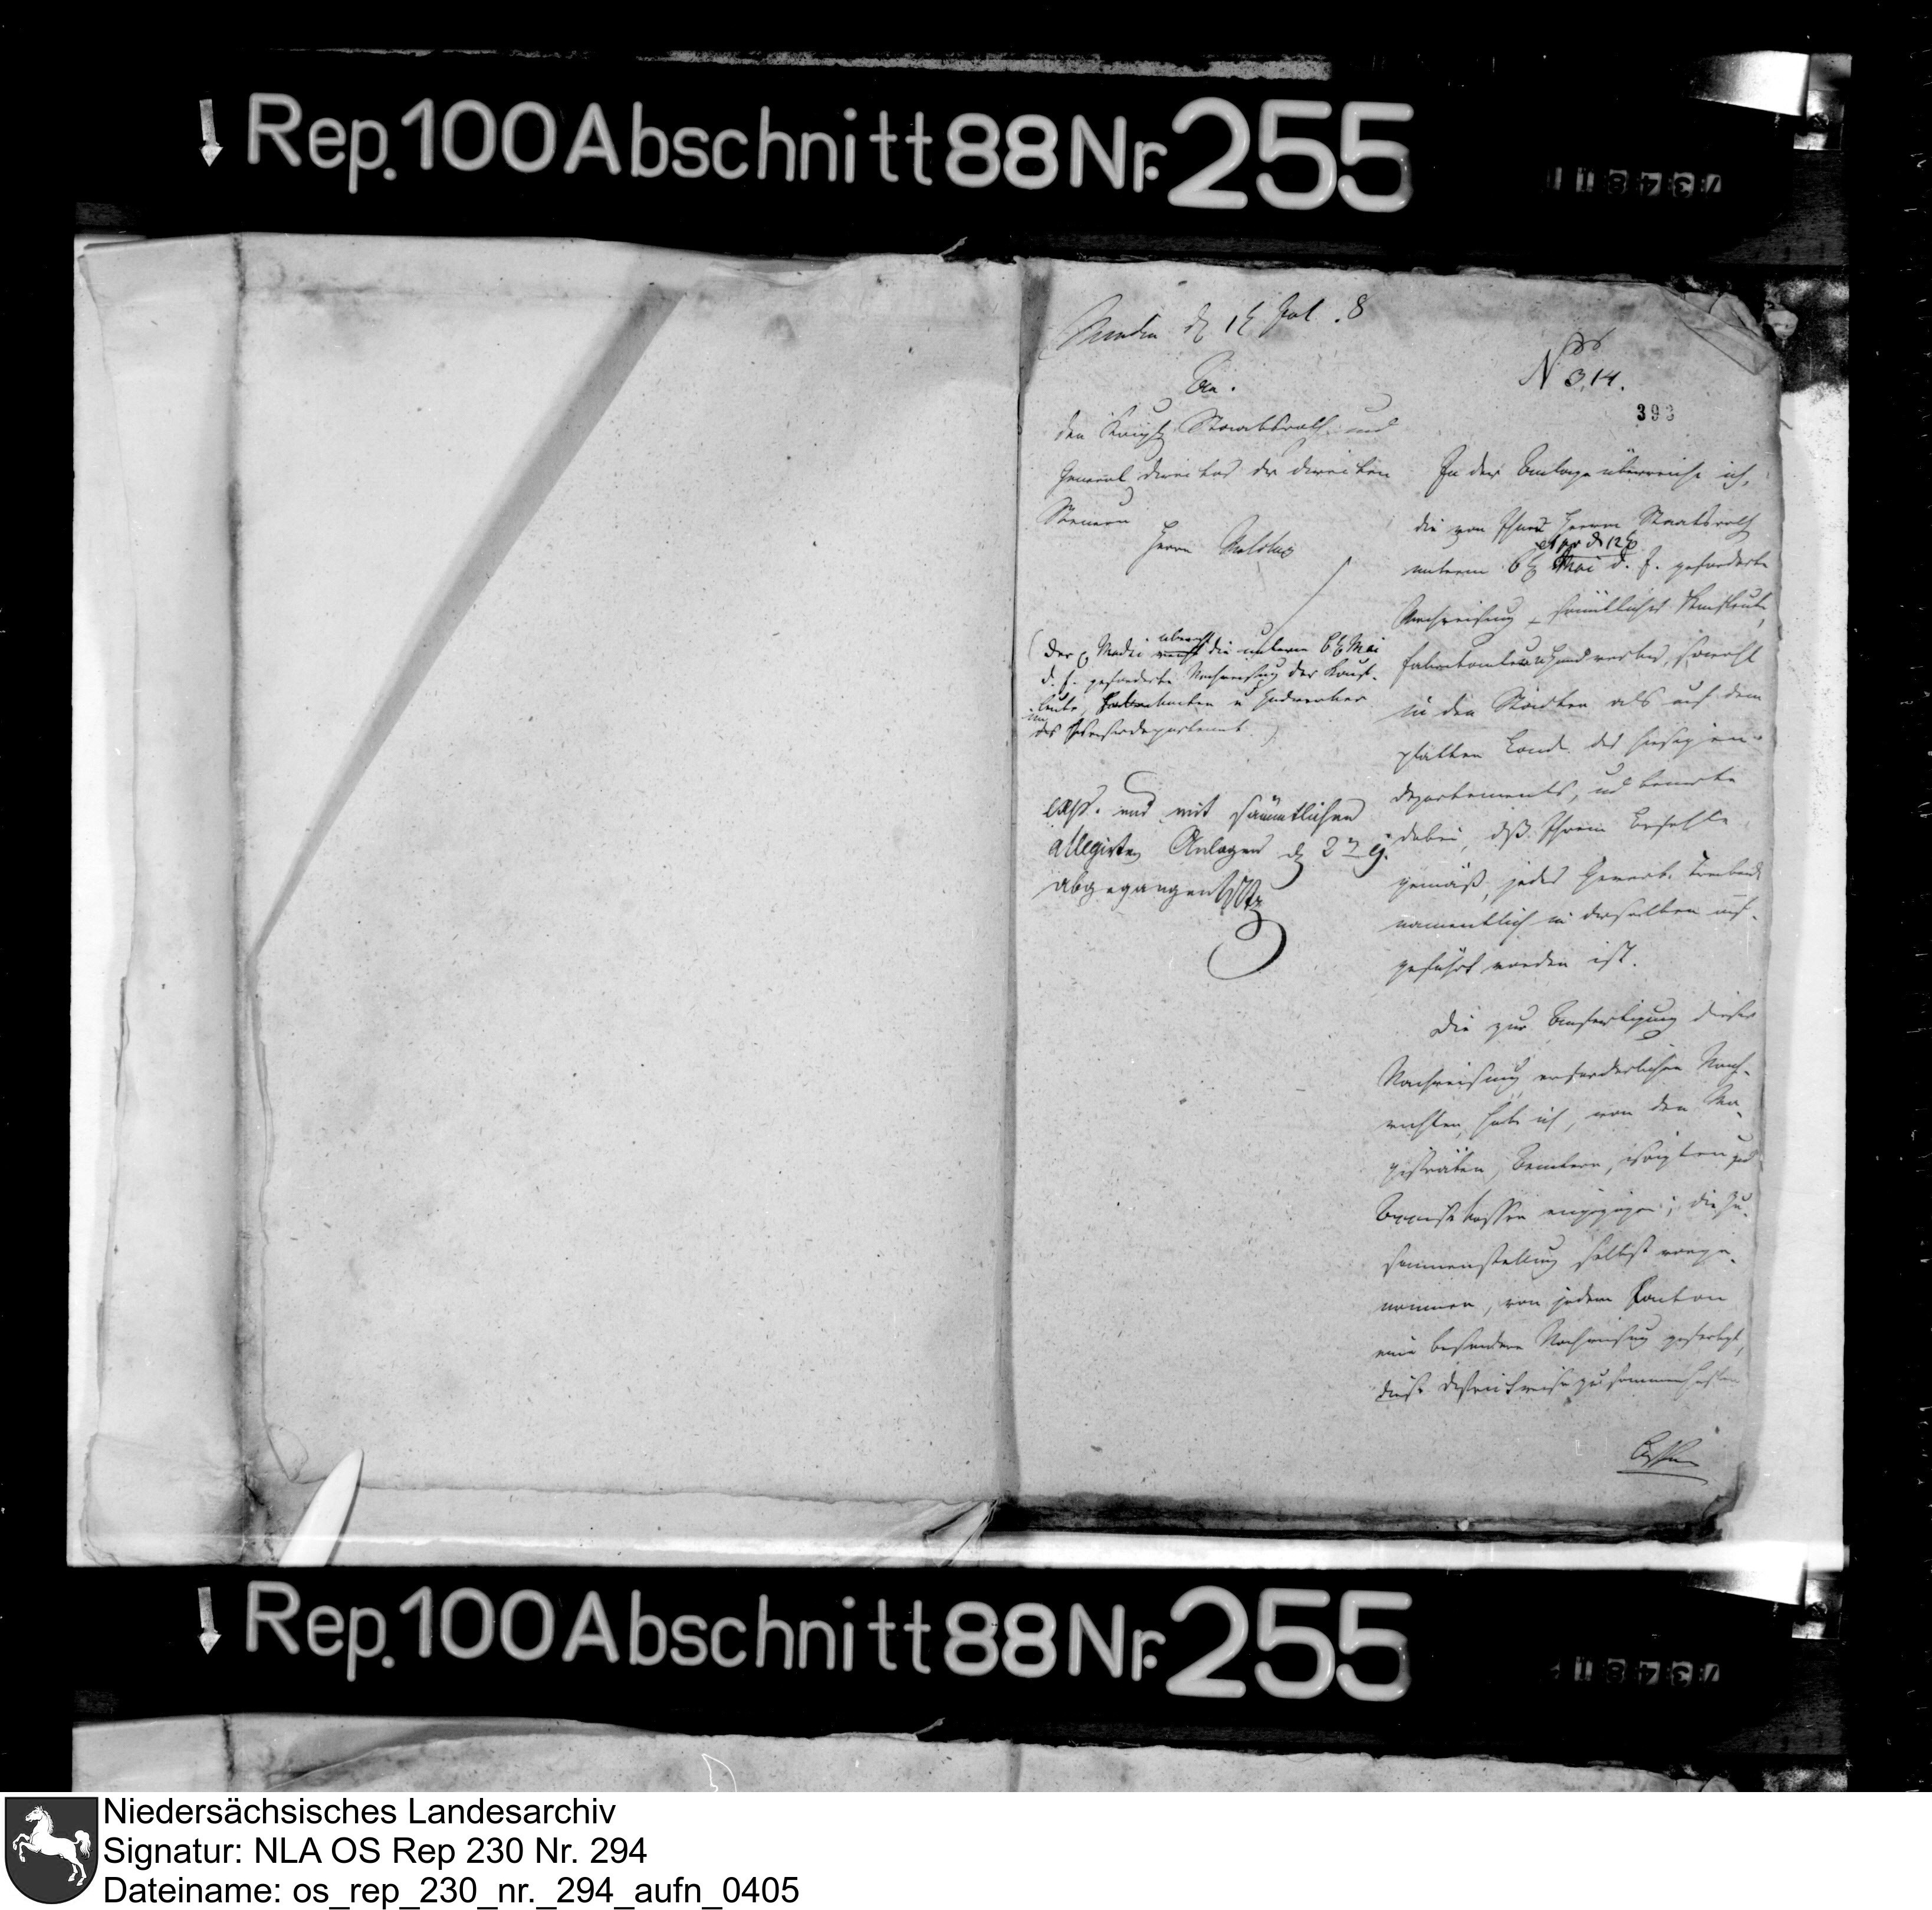 Rep. 100 Abschnitt 88 Nr. 255
Minden d 1t Jul. 8
An.
den Königl Staatsrath und
General Director der directen
Steuern
Herrn Malchus
(Der p Modri die unterm 6t Mai
d. J. geforderte Nachweisung der Kauf-
leute, Fabrikanten u Handwerker
des Weserdepartements.)
exp. und mit sämmtlichen
allegirten Anlagen d 2n ej.
abgegangen
No 314.
393
In der Anlage überreiche ich,
die von Ihnen Herrn Staatsrath
et pr d 12t
unterm 6t Mai d. J. geforderte
Nachweisung sämtlicher Kaufleute,
Fabrikanten u Handwerker, sowohl
in den Städten als auf dem
platten Lande des hiesigen
Departements, und bemerke
dabei, daß Ihrem Befehle
gemäß, jeder Gewerbe Treibende
namentlich in derselben auf-
geführt worden ist.
Die zur Anfertigung dieser
Nachweisung erforderlichen Nach-
richten habe ich, von den Ma-
gisträten, Aemtern, und
Accisekassen eingezogen, die Zu-
sammenstellung selbst vorge-
nommen, von jedem Canton
eine besondere Nachweisung gefertigt,
diese Districtweise zusammenheften
lassen
Rep. 100 Abschnitt 88 Nr. 255
Niedersächsisches Landesarchiv
Signatur: NLA OS Rep 230 Nr. 294
Dateiname: os_rep_230_nr._294_aufn_0405